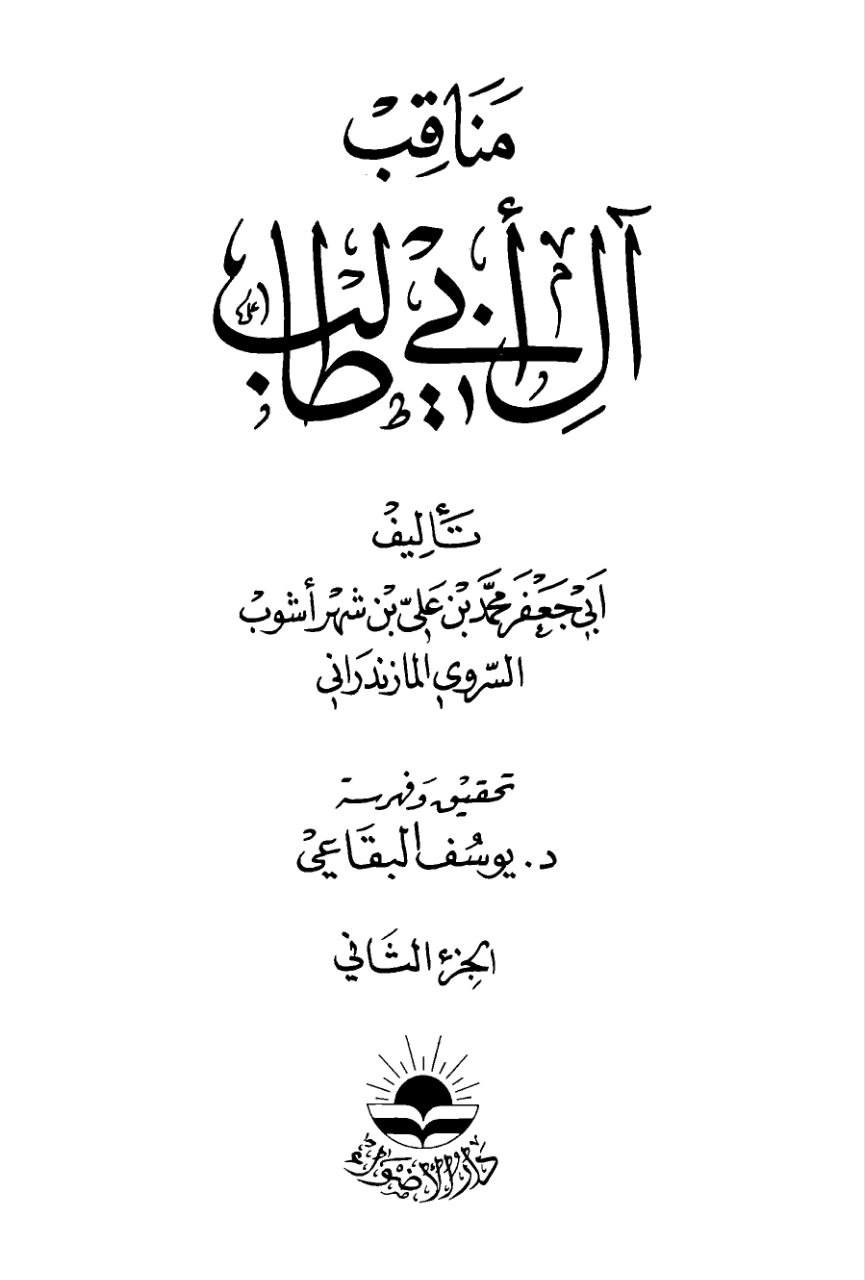 مَنَاقِب
آلِ أَبي طالب
تَأليف
أَبي جَعْفَر مُحمَّد بْن عَليّ بْن شَهْرأشوب
السّروي المازندَراني
تحقيق وَفهرسة
د. يوسُف البقَاعي
الجزء الثَاني
دَار الأضوَاء